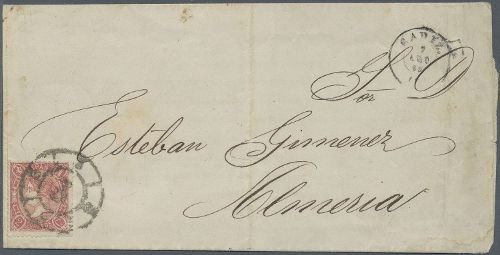 CADIZ
7
AGO
Sor D
Esteban Gimenez
Almeria